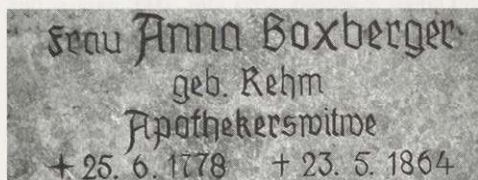 Frau Anna Boxberger
geb. Rehm
Apothekerswitwe
+ 25. 6. 1778 + 23. 5. 1864